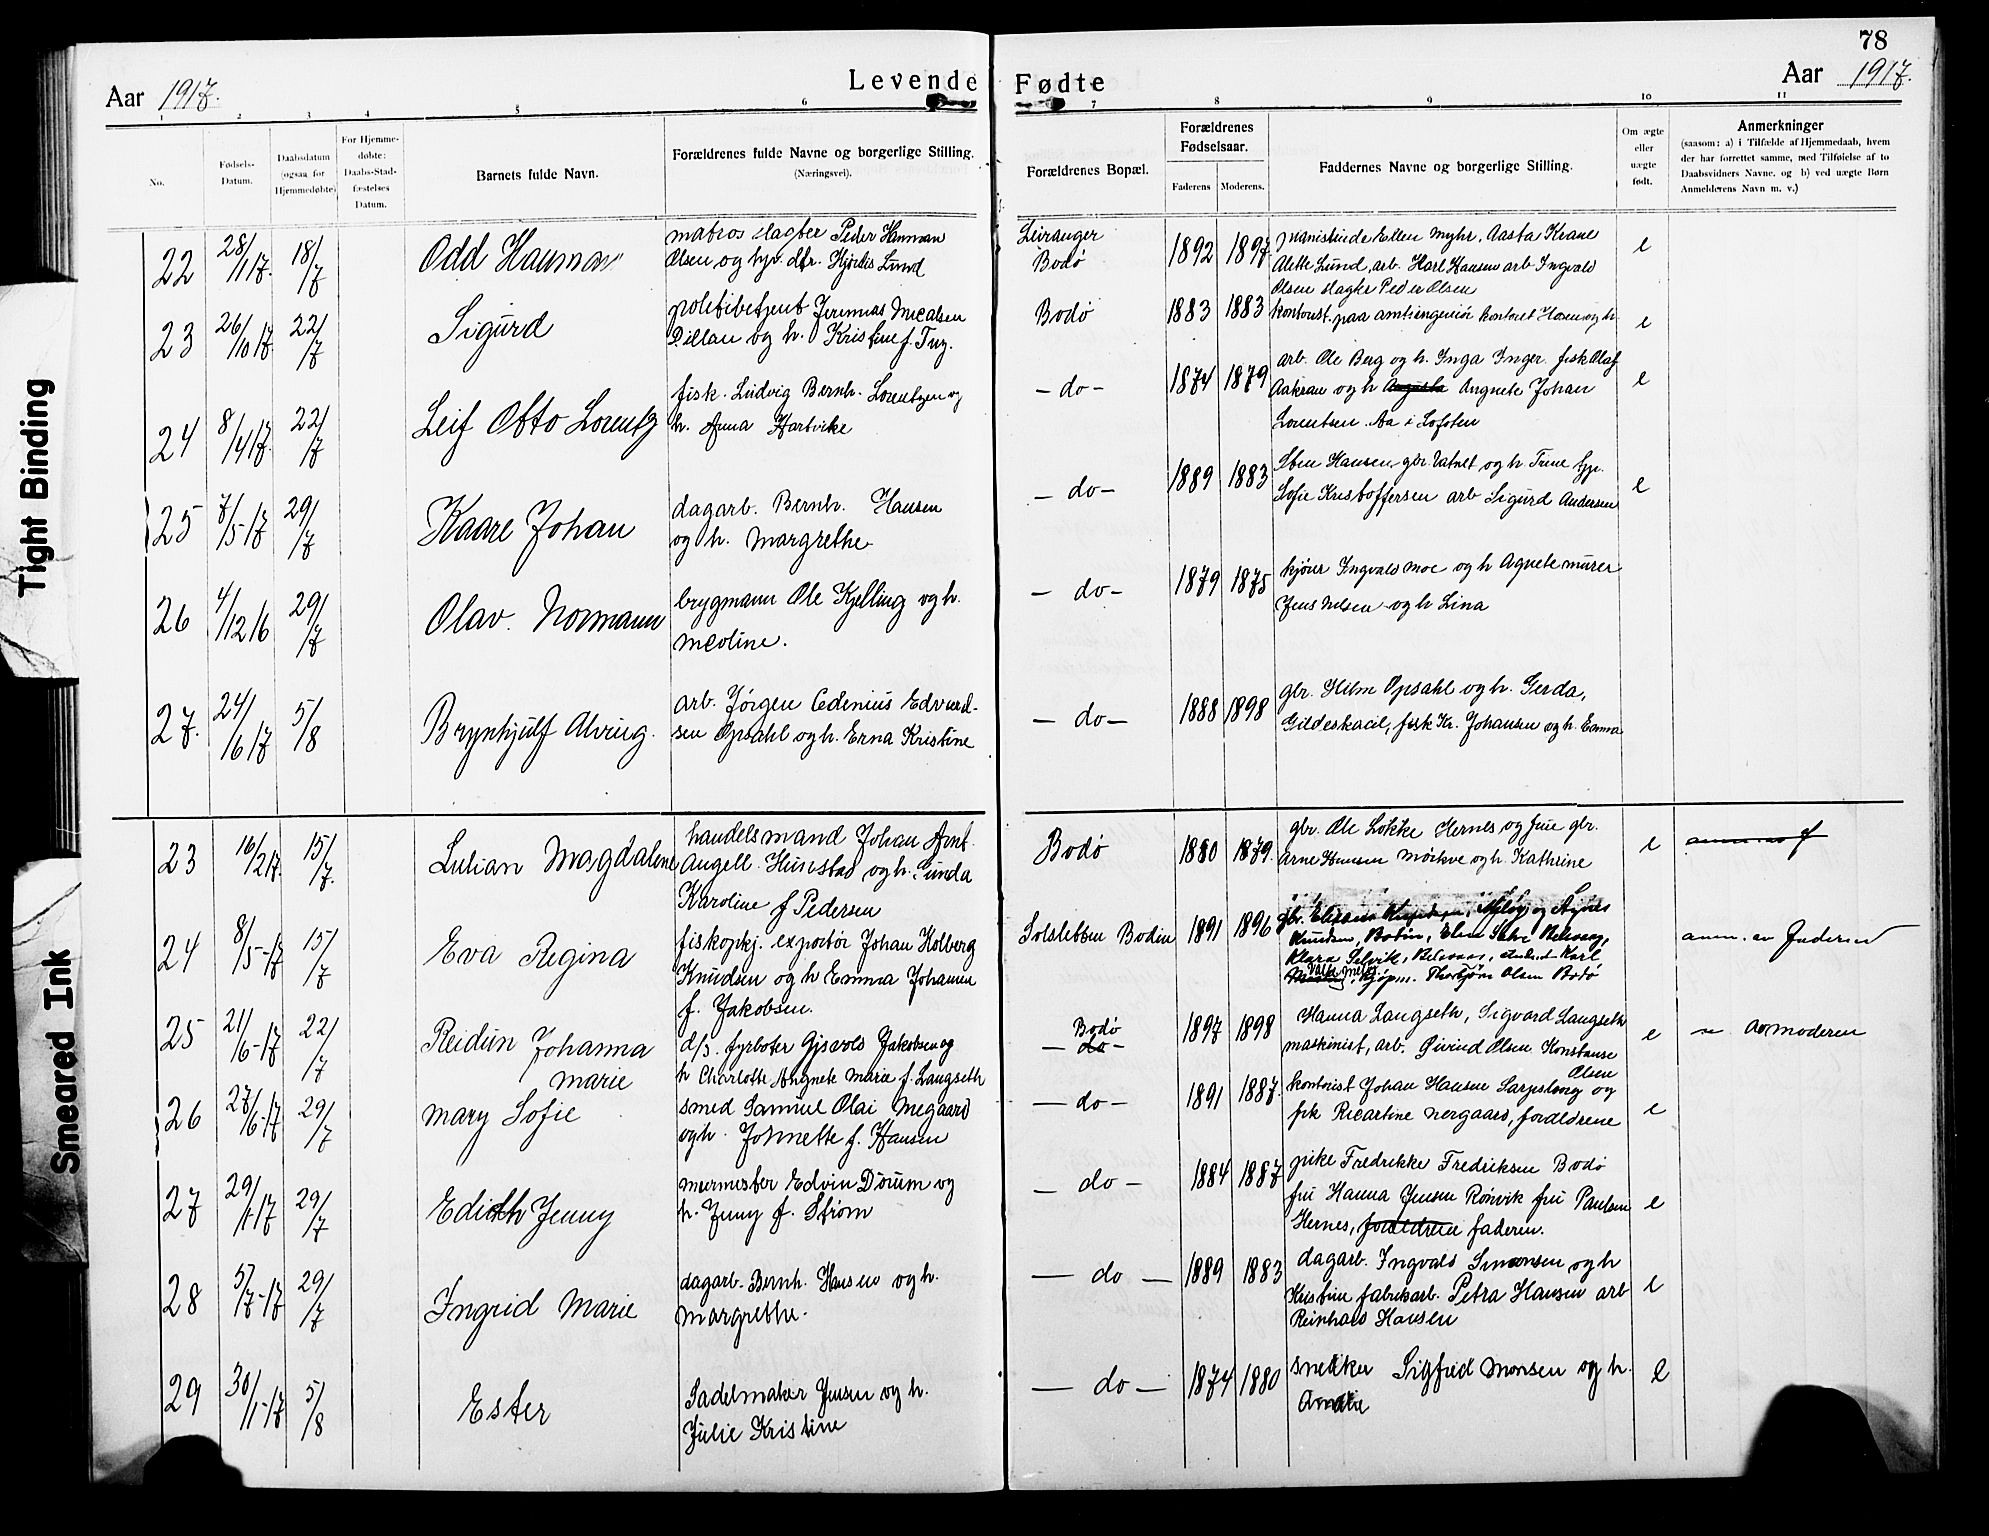 78
Aar 1917. Levende Fødte Aar 1917.
1 2 3 4 5 6 7 8 9 10 11
No.
Fødsels-Datum.
Daabsdatum (ogsaa for Hjemmedøbte)
For Hjemme-døbte: Daabs-Stad-fæstelses Datum.
Barnets fulde Navn.
Forældrenes fulde Navne og borgerlige Stilling.
(Næringsvei).
Forældrenes Bopæl.
Forældrenes Fødselsaar.
Faderens Moderens.
Faddernes Navne og borgerlige Stilling.
Om ægte eller uægte født.
Anmerkninger
(saasom: a) i Tilfælde af Hjemmedaab, hvem
der har forrettet samme, med Tilføielse af to
Daabsvidners Navne, og b) ved uægte Børn
Anmelderens Navn m. v.)
22 28/1 17. 18/7 Odd Hauman
matros slagter Peder Hauman
Olsen og hu. Lund
Leiranger
Bodø
1892 1897
Ellen Myhr, Aasta Krane
Alette Lund, arb. Karl Hansen arb Ingvald
Olsen slagter Peder Olsen
e
23 26/10 17. 22/7 Sigurd
politibetjent
og h. Kristine f.
Bodø
1883 1883
kontorist paa amtsingeniør kontoret og h.
e
24 8/4 17. 22/7 Leif Otto Lorentz
fisk. Ludvig Bernh. Lorentzen og
h. Anna Hartvike
- do -
1874 1879
arb. Ole Berg og h. Inga Inger fisk Olaf
Aakran og h Angnete Johan
Lorentsen Aa i Lofoten
e
25 7/5-17 29/7 Kaare Johan
dagarb. Bernh. Hansen
og h. Margrethe
- do -
1889 1883
Hansen gbr. Vatnet og h. Trine
Sofie Kristoffersen arb Sigurd Andersen
e
26 4/12 16 29/7 Olav Normann
brygmann Ole Kjelling og h.
Meoline.
- do -
1879 1875
kjører Ingvald Moe og h Agnete murer
Jens Nilsen og h Lina
27. 24/6 17 5/8 Brynhjulf Alvring.
arb. Jørgen Edenius Edvard-
sen Opsahl og h. Erna Kristine
- do -
1888 1898
gbr. Hilm Opsahl og h. Gerda,
Gildeskaal, fisk Kr. Johansen og h. Emma
23 16/2 17. 15/7. Lulian Magdalene
handelsmand Johan Arnt
Angell Hunstad og h. Gunda
Karoline f Pedersen
Bodø
1880 1879.
gbr. Ole Løkke Hernes og frue gbr.
Arne Hansen Mørkve og h. Kathrine
e
24 8/5-17 15/7 Eva Regina
fiskopkj. exportør Johan Holberg
Knudsen og h Emma Johanne
f. Jakobsen.
Solsletten Bodin
1891 1896
og Agnes
Knudsen, Bodin,
Klara Selvik, Karl
kjøpm. Thorbjørn Olsen Bodø
anm. av faderen
25 21/6-17 22/7 Reidun Johanna
Marie
d/s. fyrbøter Jakobsen og
h Charlotte Angnete Marie f. Langseth
Bodø
- do -
1897 1898
Hanna Langseth, Sigvard Langseth
maskinist, arb. Øivind Olsen Konstanse
Olsen
e
av moderen
26 27/6-17 29/7 Mary Sofie
smed Samuel Olai Negaard
og h. Johnette f. Hansen
- do -
1891 1887.
kontorist Johan Hansen Sarpsborg og
frk Ricartine Nergaard, forældrene
e
27 29/1-17 29/7 Edidth Jenny
murmester Edvin Dørum og
h. Jenny f. Strøm
- do -
1884 1887
pike Fredrikke Fredriksen Bodø
fru Hanna Jensen Rønvik fru Paulsen
Hernes, forældrene faderen.
e
28 5/7-17 29/7 Ingrid Marie
dagarb. Bernh. Hansen og h.
Margrethe.
- do -
1889 1883
dagarb. Ingvald Simonsen og h
Kristine fabrikarb. Petra Hansen arb
Reinhard Hansen
e
29 30/1-17 5/8 Ester
Sadelmaker Jensen og h.
Julie Kristine
- do -
1874 1880
snekker Sigfred Monsen og h.
e
Tight Binding
Smeared Ink